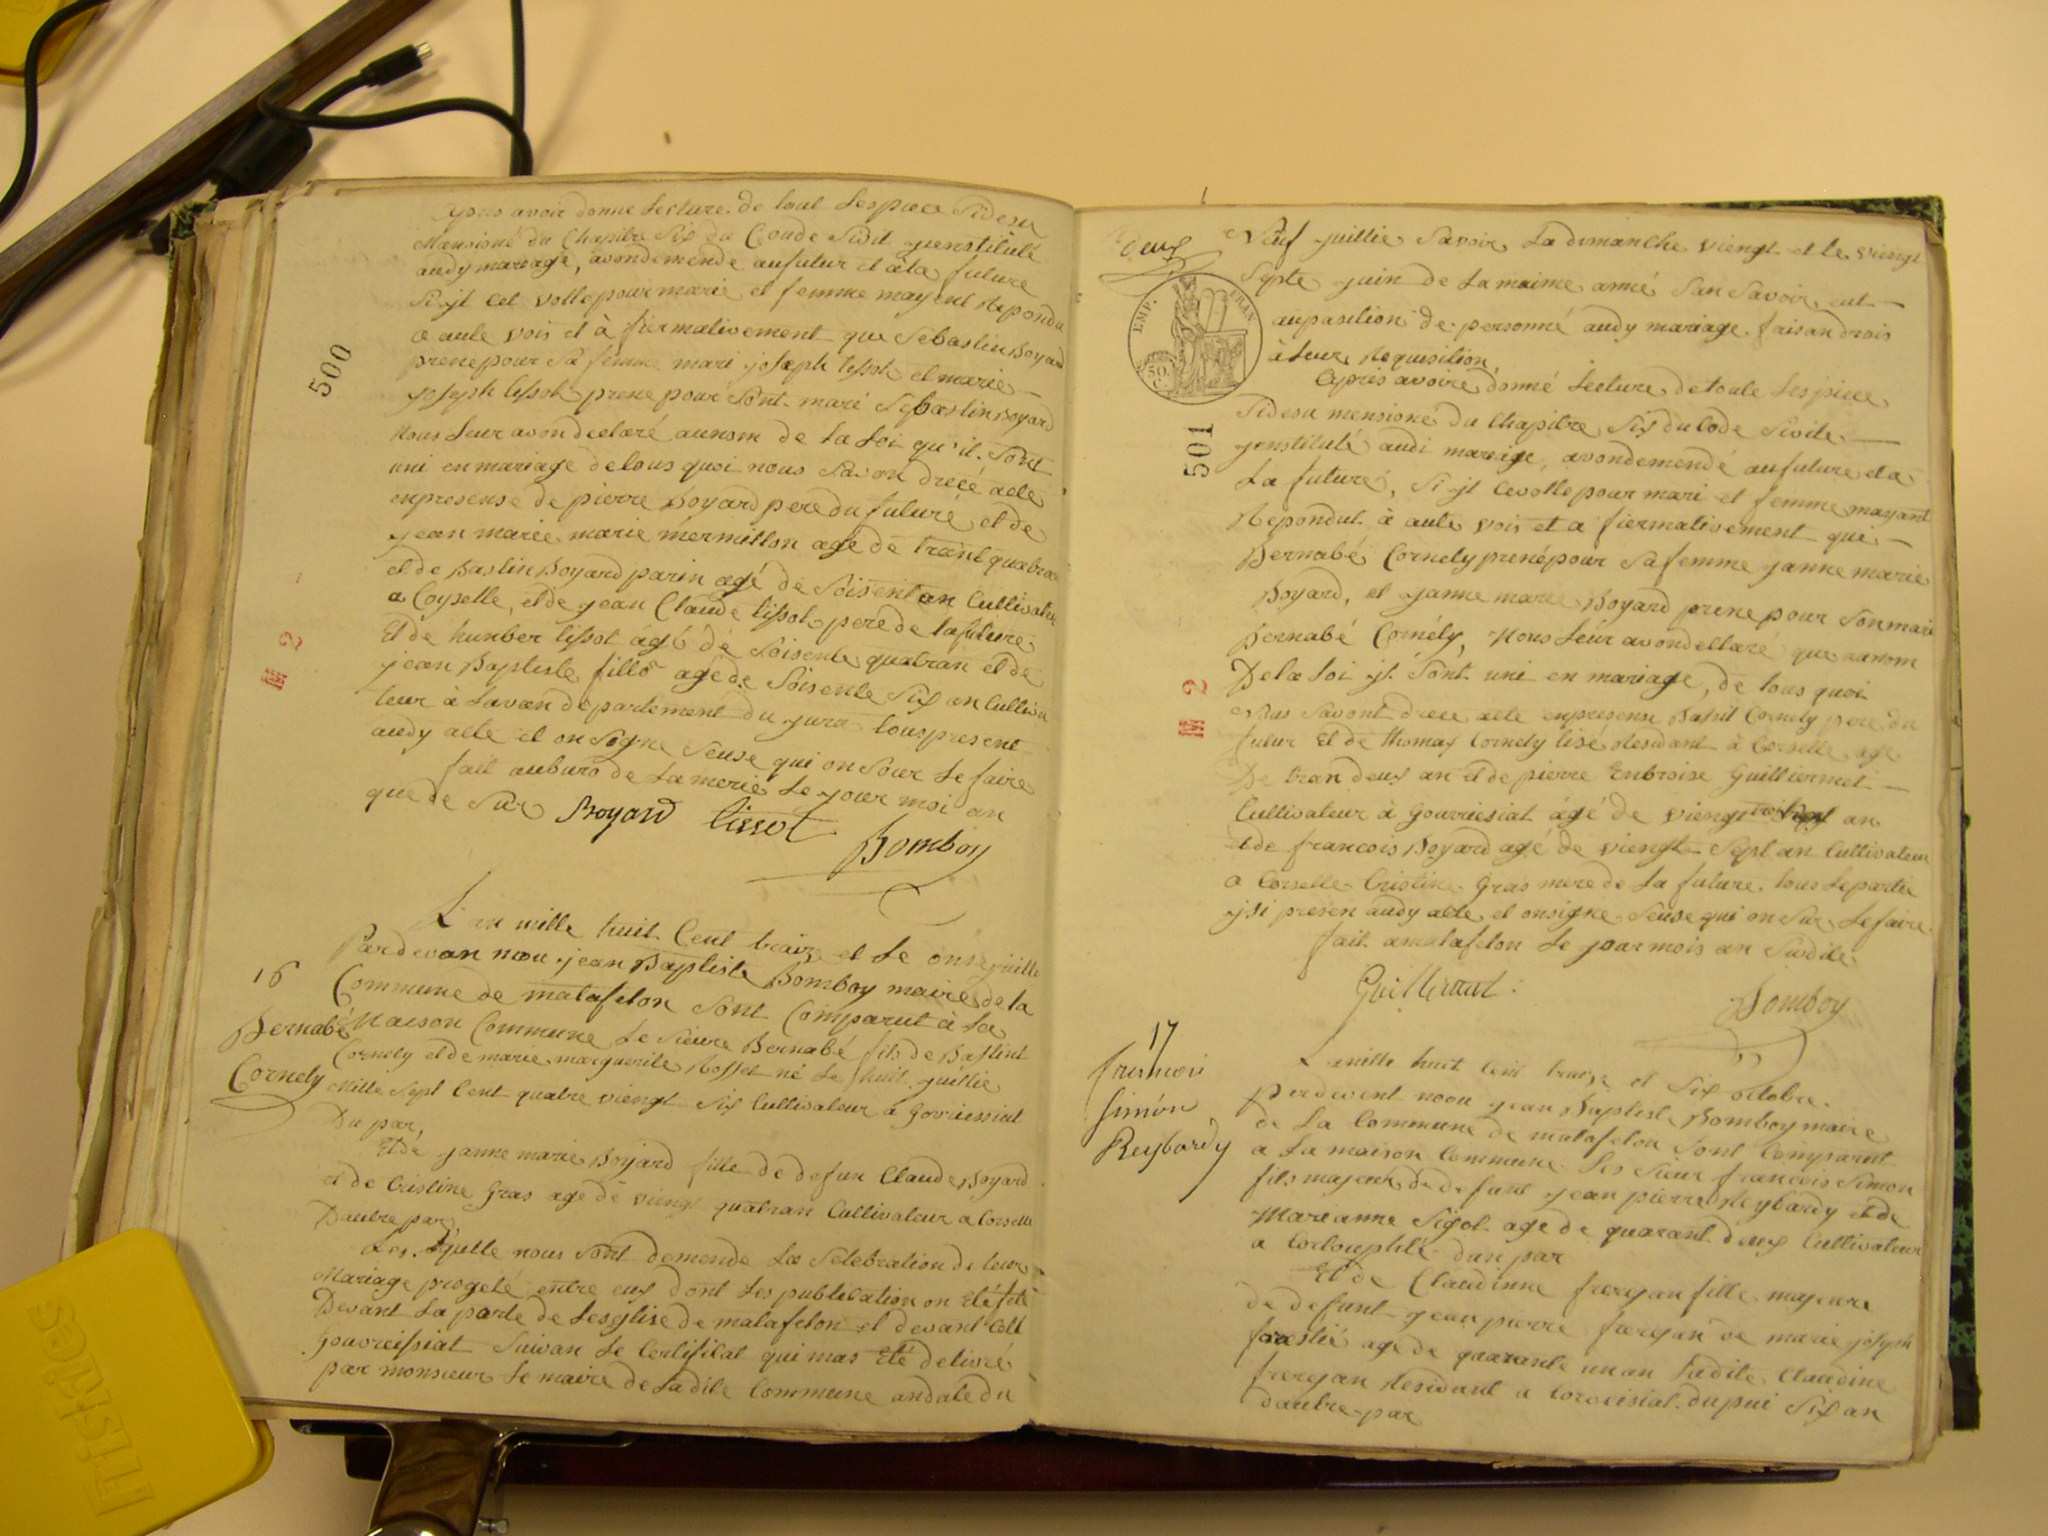 Apres avoir donne Lecture de tout Les piece Sidesu
Mensioné du Chapitre Six du Coude Sivil yenstitulé
audy mariage, avondemende aufutur et àla future
Si yl cet volle pour marie et femme mayent Repondu
a aute vois et à fiermativement que Sebastin Boyard
prene pour Sa femme mari joseph tissot et marie
joseph tissot prene pour Sont mari Sebastin Boyard
Nous Leur avon declaré aunom de La Loi qu'il Sont
uni en mariage de tous quoi nous Savon drecé acte
enpresense de pierre Boyard pere du futuré et de
jean marie marie mermillon agé de trant quatran
et de Bastin Boyard parin agé de Soisent an Cultivateur
a Coyselle, et de jean Claude tissot pere de la future
Et de hunber tissot agé dé Soisente quatran et de
jean Baptiste fillo agé de Soisente Six an Cultiva
teur à Lavan departement du jura tous present
audy acte et on Signe Seuse qui on Sour Le faire
fait auburo de La merie Le jour moi an
que de Sur Boyard tissot
Bomboy
500
2
L'an mille huit Cent traize et Le onze juillie
Pardevan nou jean Baptiste Bomboy maire de la
Commune de matafelon Sont Comparut à La
Maison Commune Le Sieure Bernabé fils de Bastint
Cornely et de marie marguerite Rosset né Le huit juillie
Mille Sept Cent quatre viengt Six Cultivateur a Govriessiat
Du par,
Et de yanne marie Boyard fille de defun Claude Boyard
et de Cristine Gras age de viengt quatran Cultivateur a Corselle
Dautre par,
16
Bernabé
Cornely
Les quelle nous Sont demende La Selebration de leur
Mariage progeté entre eux dont Les publication on Eté fete
Devant La porte de Lesglise de matafelon et devant Celle
Gouvreissiat Suivan Le Certificat qui mas Eté delivré
par monsieur Le maire de Ladite Commune andate du
deux
Neuf juillie Savoir La dimanche viengt et le viengt
Septe juin de La maime anné San Savoir eut
auposition de personné audy mariage faisan drois
à Leur Requisition
EMP. FRAN.
50 C.
501
2
Apris avoire donné Lecture de toute Les piece
Sidesu mensioné du Chapitre Six du Code Sivile
yenstitulé audi mariage, avondemendé aufuture et a
La futuré, Si yl Cevolle pour mari et femme mayant
Repondut à aute vois et a fiermativement que
Bernabé Cornely prene pour Sa femme yanne marie
Boyard, et yanne marie Boyard prene pour Son mari
Bernabé Cornély, Nous Leur avon dellaré que aunom
De la Loi yl Sont uni en mariage, de tous quoi
Nous Savont drece acte enpresense Bastit Cornely pere du
futur Et de thomas Cornely Residant à Corselle age
De tran deux an et de pierre Enbroise Guilliermet
Cultivateur à Gouvriesiat ágé de viengt an
et de francois Boyard agé de viengt Sept an Cultivateur
a Corselle Cristine Gras mere de La future tous Le partie
ysi presen audy acte et onsigne Seuse qui on Sur Le faire
fait a matafelon Le jour mois an Susdite
Guillermet Bomboy
17
francoi
Simón
Reybardy
L'amille huit Cent traize et Six octobre
perdevent nou jean Baptiste Bomboy maire
de La Commune de matafelon Sont Comparut
a La maison Commune Les Sieur francois Simon
fils majeur de defunt jean pierre Reybardy et de
Marianne Sigot age de quarant deux Cultivateur
a dun par
Et de Claudinne frerejan fille majeure
de defunt jean pierre frerejan de marie joseph
age de quarante un an Ladite Claudine
frerejan Residant a dupui Six an
dautre par